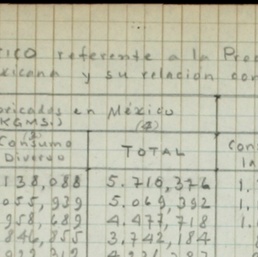 ICO referente a la Pro
xicana y su relacion con
bricados en México
(KGMS.) (4)
(3)
Consumo TOTAL Con
Diverso In
138,088 5.710,376 1.
055,939 5.069,392 1.
958,689 4.477,718 1.
846,855 3.742,184